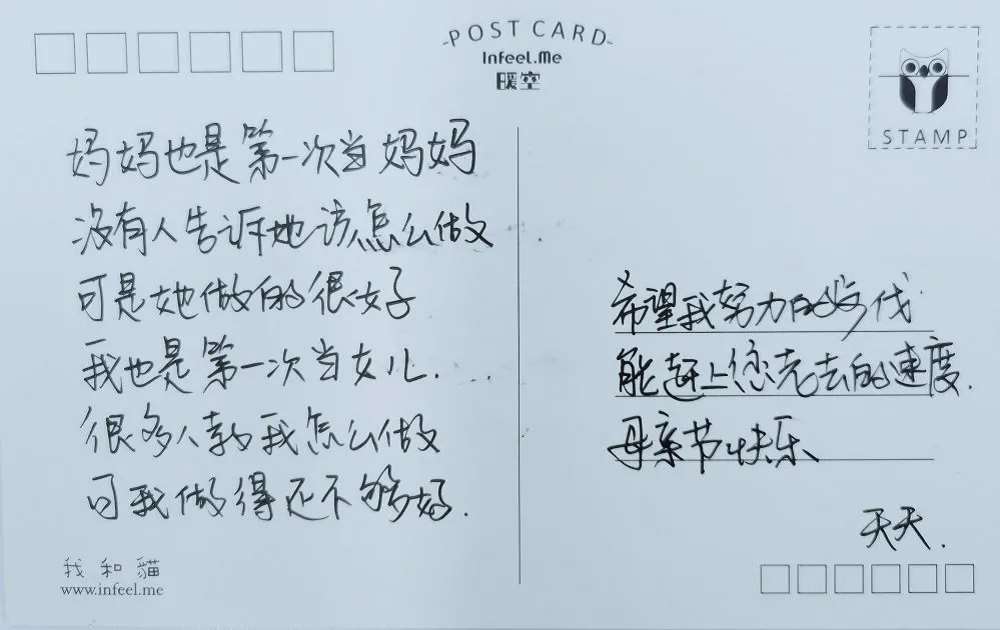 POST CARD
Infeel.Me
暖空
STAMP
妈妈也是第一次当妈妈
没有人告诉她该怎么做
可是她做的很好
我也是第一次当女儿.
很多人教我怎么做
可我做得还不够好.
希望我努力的步伐
能赶上您老去的速度.
母亲节快乐
天天.
我和貓
www.infeel.me